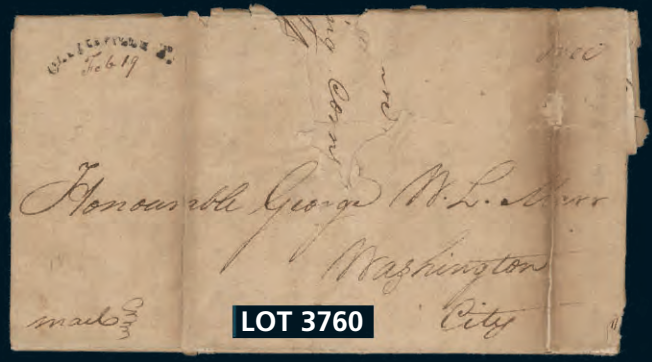 CLARKSVILLE T.
Feb 19
Free
and
Honourable George W. L. Marr
Washington
City
mail
LOT 3760